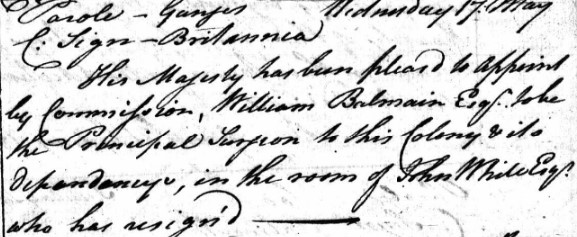 Parole - Ganges Wednesday 17. May
C. Sign - Britannia
His Majesty has been pleas'd to appoint
by Commission, William Balmain Esqr. to be
the Principal Surgeon to this Colony & its
dependancys, in the room of John White Esqr.
who has resign'd